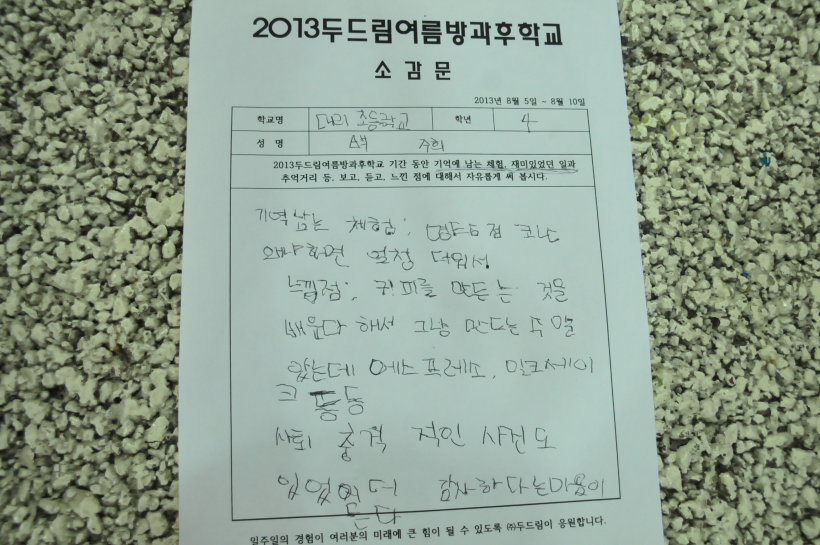 2013두드림여름방과후학교
소감문
2013년 8월 5일 ~ 8월 10일
학교명 대리 초등학교 학년 4
성 명 주희
2013두드림여름방과후학교 기간 동안 기억에 남는 체험, 재미있었던 일과
추억거리 등, 보고, 듣고, 느낀 점에 대해서 자유롭게 써 봅시다.
기억남는 체험:
왜냐하면 엄청 더워서
느낌점: 커피를 만든는 것을
배운다 해서 그냥 만드는 주 알
았는데 에스프레소, 밀크셰이
크 등등
사회 충격 적인 사건도
있었 더 감사하다는마음이
든다
일주일의 경험이 여러분의 미래에 큰 힘이 될 수 있도록 ㈜두드림이 응원합니다.